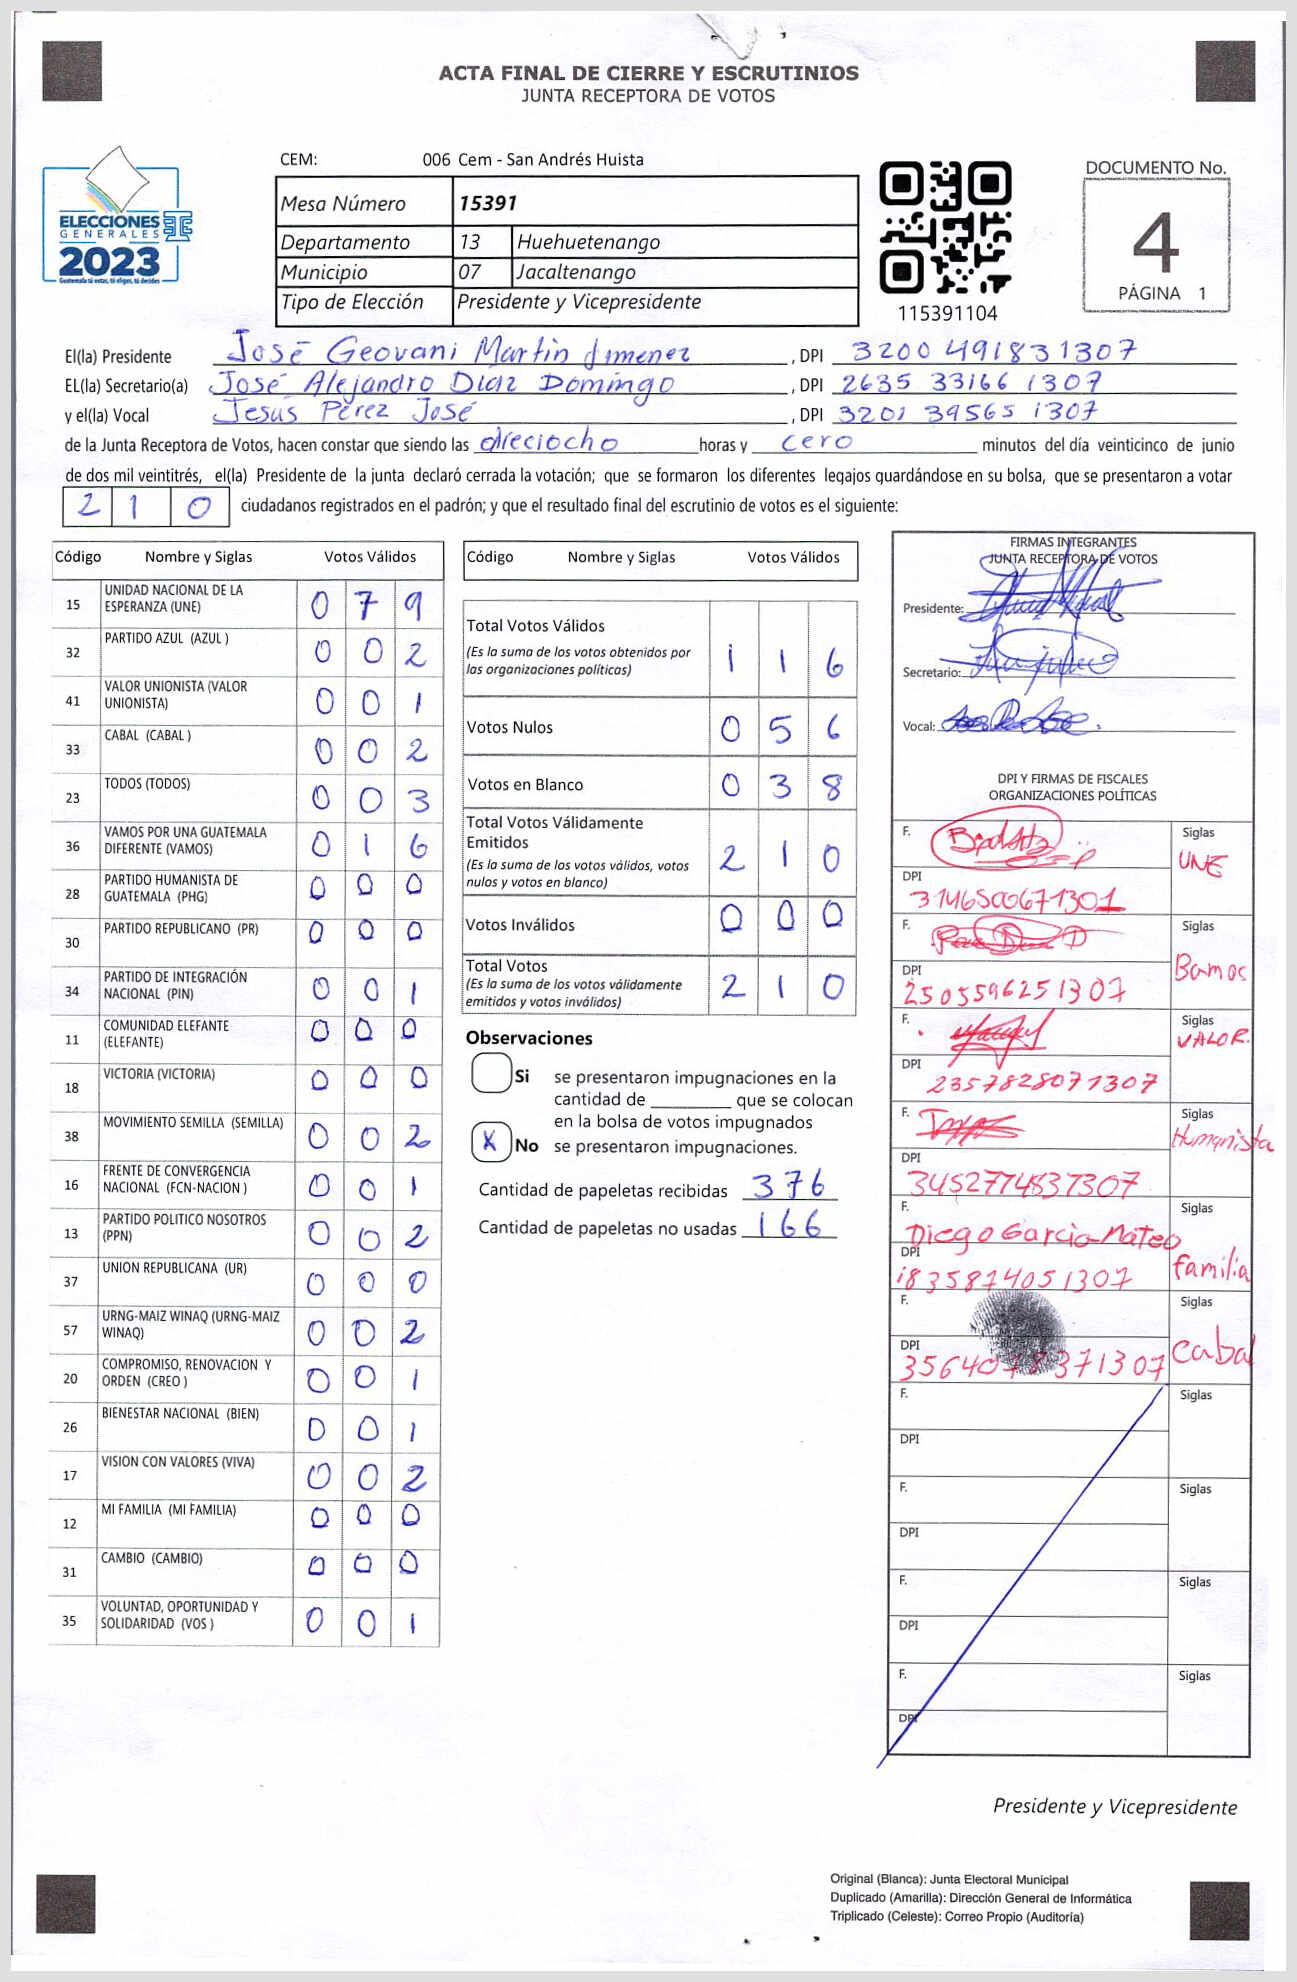 ACTA FINAL DE CIERRE Y ESCRUTINIOS
JUNTA RECEPTORA DE VOTOS
ELECCIONES
GENERALES
2023
Guatemala tú votas, tú eliges, tú decides
CEM: 006 Cem - San Andrés Huista
Mesa Número 15391
Departamento 13 Huehuetenango
Municipio 07 Jacaltenango
Tipo de Elección Presidente y Vicepresidente
115391104
DOCUMENTO No.
4
PÁGINA 1
El(la) Presidente José Geovani Martin Jimenez , DPI 3200 491831307
EL(la) Secretario(a) José Alejandro Díaz Domingo , DPI 2635 33166 1307
y el(la) Vocal Jesús Pérez José , DPI 3201 39565 1307
de la Junta Receptora de Votos, hacen constar que siendo las dieciocho horas y cero minutos del día veinticinco de junio
de dos mil veintitrés, el(la) Presidente de la junta declaró cerrada la votación; que se formaron los diferentes legajos guardándose en su bolsa, que se presentaron a votar
2 1 0 ciudadanos registrados en el padrón; y que el resultado final del escrutinio de votos es el siguiente:
Código Nombre y Siglas Votos Válidos
15 UNIDAD NACIONAL DE LA
ESPERANZA (UNE) 0 7 9
32 PARTIDO AZUL (AZUL ) 0 0 2
41 VALOR UNIONISTA (VALOR
UNIONISTA) 0 0 1
33 CABAL (CABAL ) 0 0 2
23 TODOS (TODOS) 0 0 3
36 VAMOS POR UNA GUATEMALA
DIFERENTE (VAMOS) 0 1 6
28 PARTIDO HUMANISTA DE
GUATEMALA (PHG) 0 0 0
30 PARTIDO REPUBLICANO (PR) 0 0 0
34 PARTIDO DE INTEGRACIÓN
NACIONAL (PIN) 0 0 1
11 COMUNIDAD ELEFANTE
(ELEFANTE) 0 0 0
18 VICTORIA (VICTORIA) 0 0 0
38 MOVIMIENTO SEMILLA (SEMILLA) 0 0 2
16 FRENTE DE CONVERGENCIA
NACIONAL (FCN-NACION ) 0 0 1
13 PARTIDO POLITICO NOSOTROS
(PPN) 0 0 2
37 UNION REPUBLICANA (UR) 0 0 0
57 URNG-MAIZ WINAQ (URNG-MAIZ
WINAQ) 0 0 2
20 COMPROMISO, RENOVACION Y
ORDEN (CREO ) 0 0 1
26 BIENESTAR NACIONAL (BIEN) 0 0 1
17 VISION CON VALORES (VIVA) 0 0 2
12 MI FAMILIA (MI FAMILIA) 0 0 0
31 CAMBIO (CAMBIO) 0 0 0
35 VOLUNTAD, OPORTUNIDAD Y
SOLIDARIDAD (VOS ) 0 0 1
Código Nombre y Siglas Votos Válidos
Total Votos Válidos
(Es la suma de los votos obtenidos por
las organizaciones políticas) 1 1 6
Votos Nulos 0 5 6
Votos en Blanco 0 3 8
Total Votos Válidamente
Emitidos
(Es la suma de los votos válidos, votos
nulos y votos en blanco) 2 1 0
Votos Inválidos 0 0 0
Total Votos
(Es la suma de los votos válidamente
emitidos y votos inválidos) 2 1 0
Observaciones
Si se presentaron impugnaciones en la
cantidad de ________ que se colocan
en la bolsa de votos impugnados
X No se presentaron impugnaciones.
Cantidad de papeletas recibidas 376
Cantidad de papeletas no usadas 166
FIRMAS INTEGRANTES
JUNTA RECEPTORA DE VOTOS
Presidente:
Secretario:
Vocal:
DPI Y FIRMAS DE FISCALES
ORGANIZACIONES POLÍTICAS
F. Siglas
UNE
DPI
3146500671301
F. Siglas
Bamos
DPI
2505596251307
F. Siglas
VALOR.
DPI
2357828071307
F. Siglas
Humanista
DPI
3452774837307
F. Siglas
Diego Garcia-Mateo
DPI familia
1835874051307
F. Siglas
DPI cabal
F. Siglas
DPI
F. Siglas
DPI
F. Siglas
DPI
F. Siglas
DPI
Presidente y Vicepresidente
Original (Blanca): Junta Electoral Municipal
Duplicado (Amarilla): Dirección General de Informática
Triplicado (Celeste): Correo Propio (Auditoría)